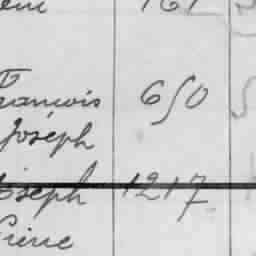 161
François 650
Joseph
Joseph 1217
Pierre